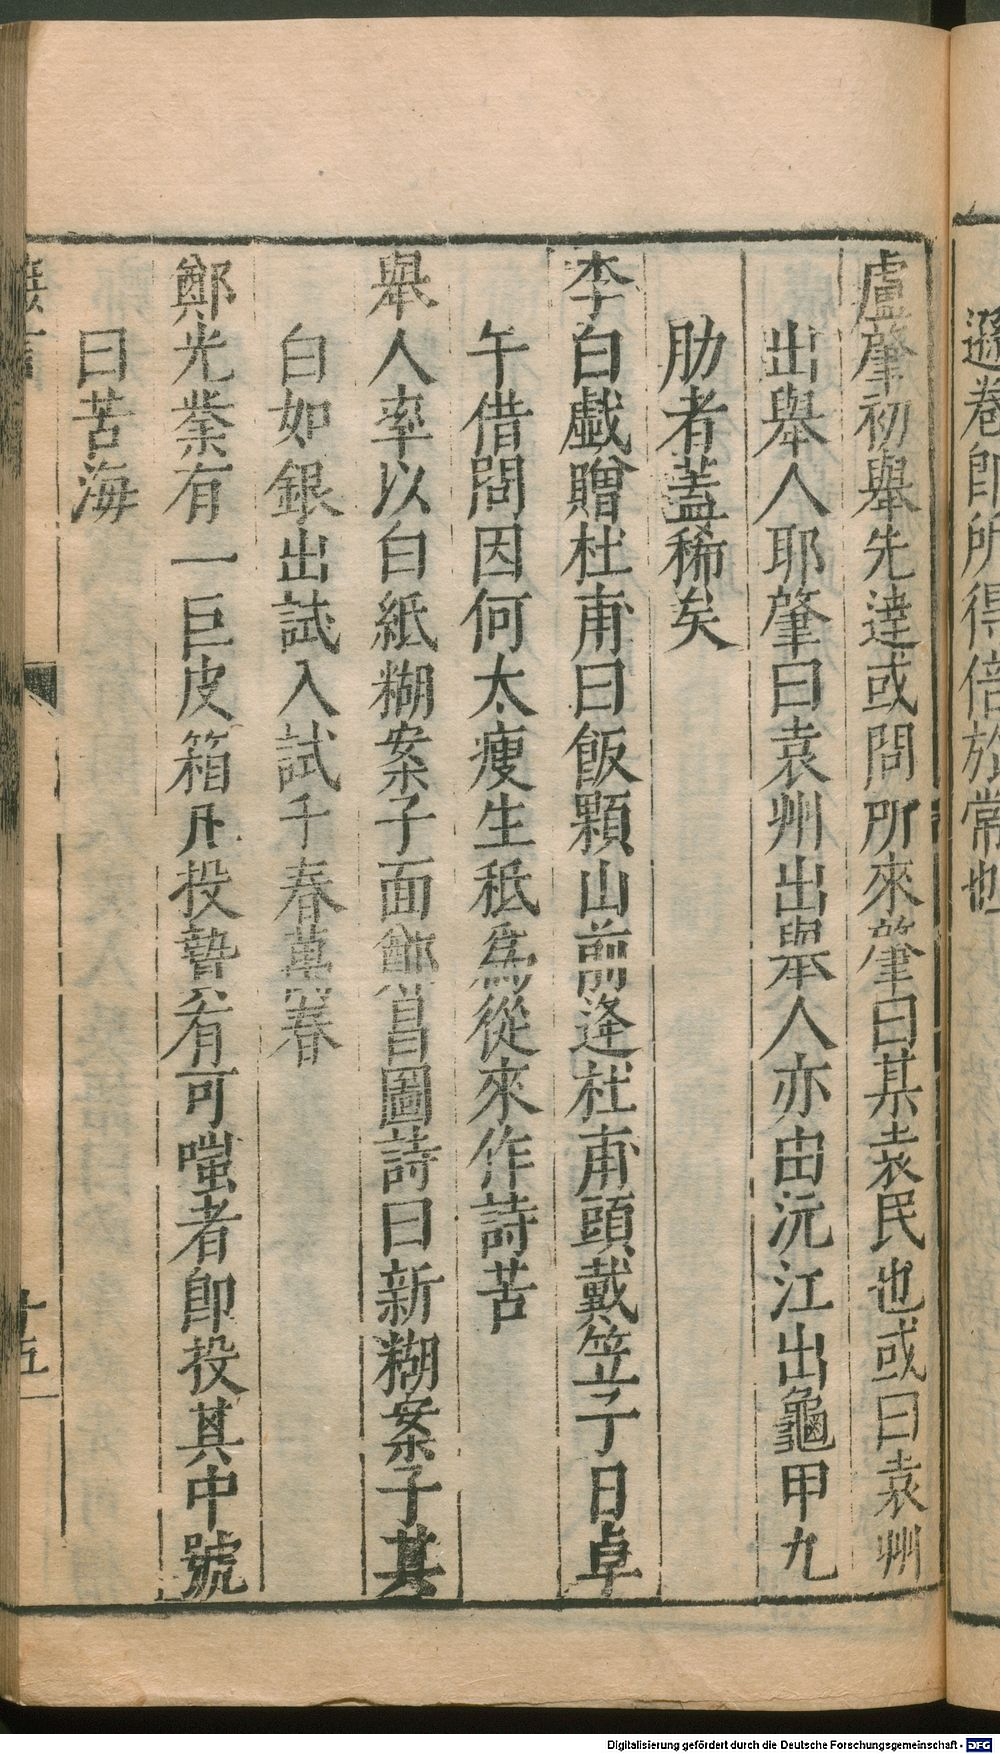 遜卷即所得倍於常也
盧肇初舉先達或問所來肇曰某袁民也或曰袁州
出舉人耶肇曰袁州出舉人亦由沅江出龜甲九
肋者蓋稀矣
李白戯贈杜甫曰飯顆山前逢杜甫頭戴笠子日卓
午借問因何太瘦生秪為從來作詩苦
舉人率以白紙糊案子面鄭昌圖詩曰新糊案子其
白如銀出試入試千春萬春
鄭光業有一巨皮箱凡投贄有可嗤者即投其中號
曰苦海
十五
Digitalisierung gefördert durch die Deutsche Forschungsgemeinschaft - DFG